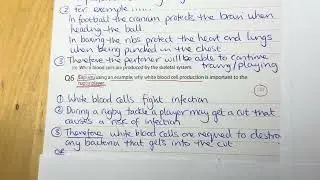 ② for example ......
In football the cranium protects the brain when
heading the ball
In boxing the ribs protect the heart and lungs
when being punched in the chest
③ Therefore the performer will be able to continue
training/playing
White blood cells are produced by the skeletal system.
Q6 using an example, why white blood cell production is important to the
rugby player.
① White blood cells fight infection
② During a rugby tackle a player may get a cut that
causes a risk of infection
③ Therefore white blood cells are required to destroy
any bacteria that gets into the cut